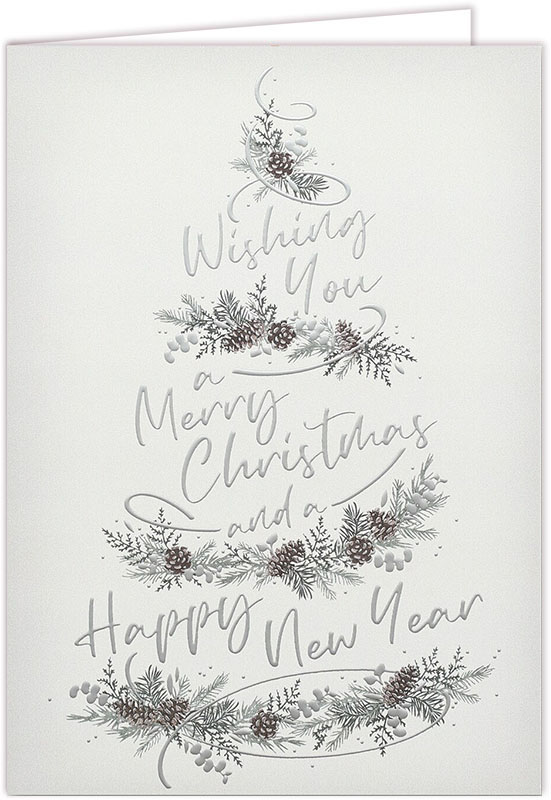 Wishing
You
a
Merry
Christmas
and a
Happy New Year